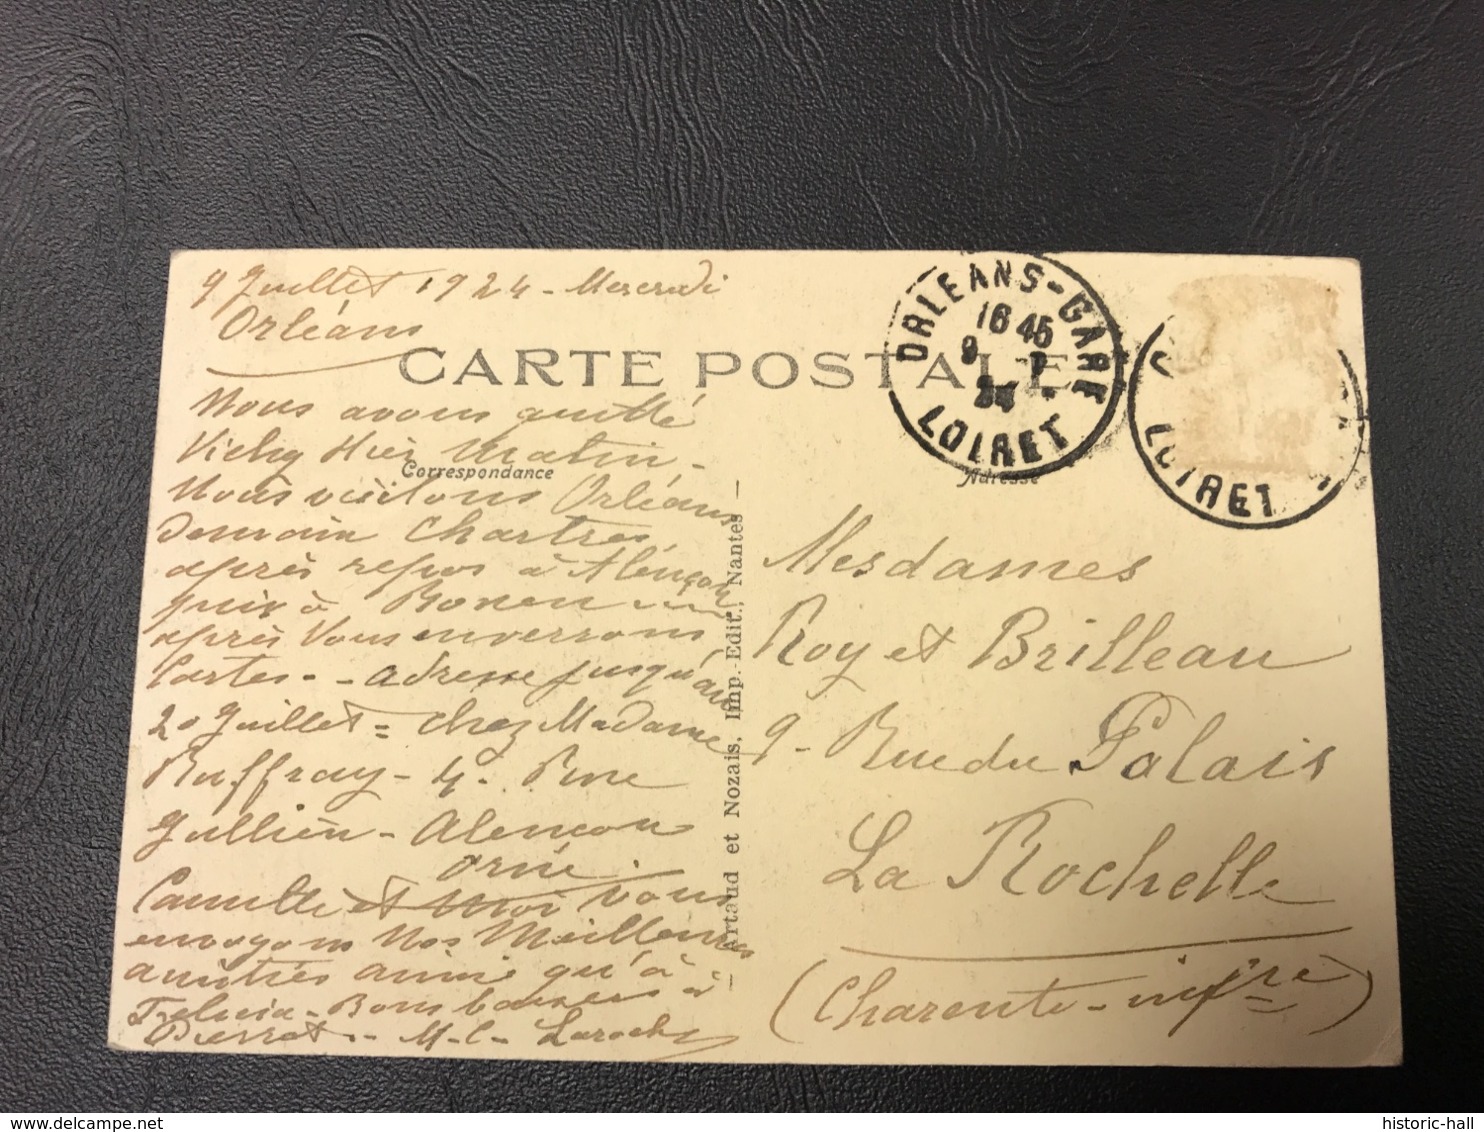 9 Juillet 1924 - Mercredi
Orléans
CARTE POSTALE
Nous avons quitté
Vichy Hier Matin -
Correspondance
Nous visitons Orléans
Demain Chartres,
après repos à Alençon
puis à Rouen
après Vous enverrons
Cartes - - adresse jusqu'au
20 Juillet = chez Madame
Ruffray - 4 - Rue
Jullien - Alençon
Orne
Camille et Moi vous
envoyons Nos Meilleures
amitiés ainsi qu'à
- Bons baisers à
Pierrot - - M. L. Laroche
- Artaud et Nozais, Imp.-Edit., Nantes -
ORLEANS-GARE
16 45
9 - 7
24
LOIRET
LOIRET
Adresse
Mesdames
Roy et Brilleau
9 - Rue du Palais
La Rochelle
(Charente - infre)
delcampe.net
historic-hall